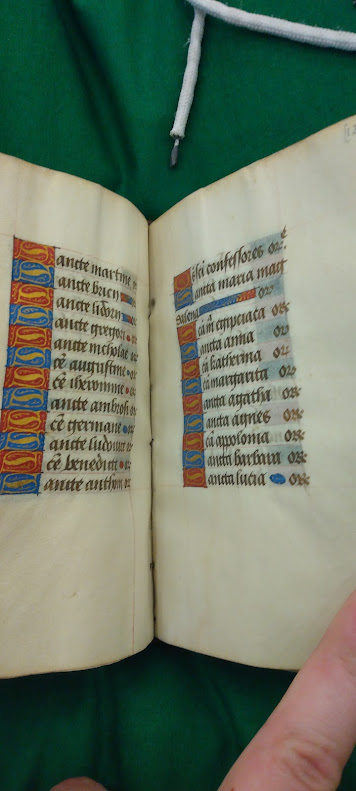 Sancte martine
Sancte bricti
Sancte sidoin
Sancte gregori
Sancte nicholae
Sce augustine
Sce iheronime
Sancte ambrosi
Sce germane
Sancte ludovice
Sce benedicte or
Sancte anthoni or
Osci confessores or.
Sancta maria mag
dalena or
Sca m egipciaca or
Sancta anna or
Sca katherina or
Sca margarita or
Sancta agatha or
Sancta agnes or
Sca appolonia or
Sancta barbara or
Sancta lucia or